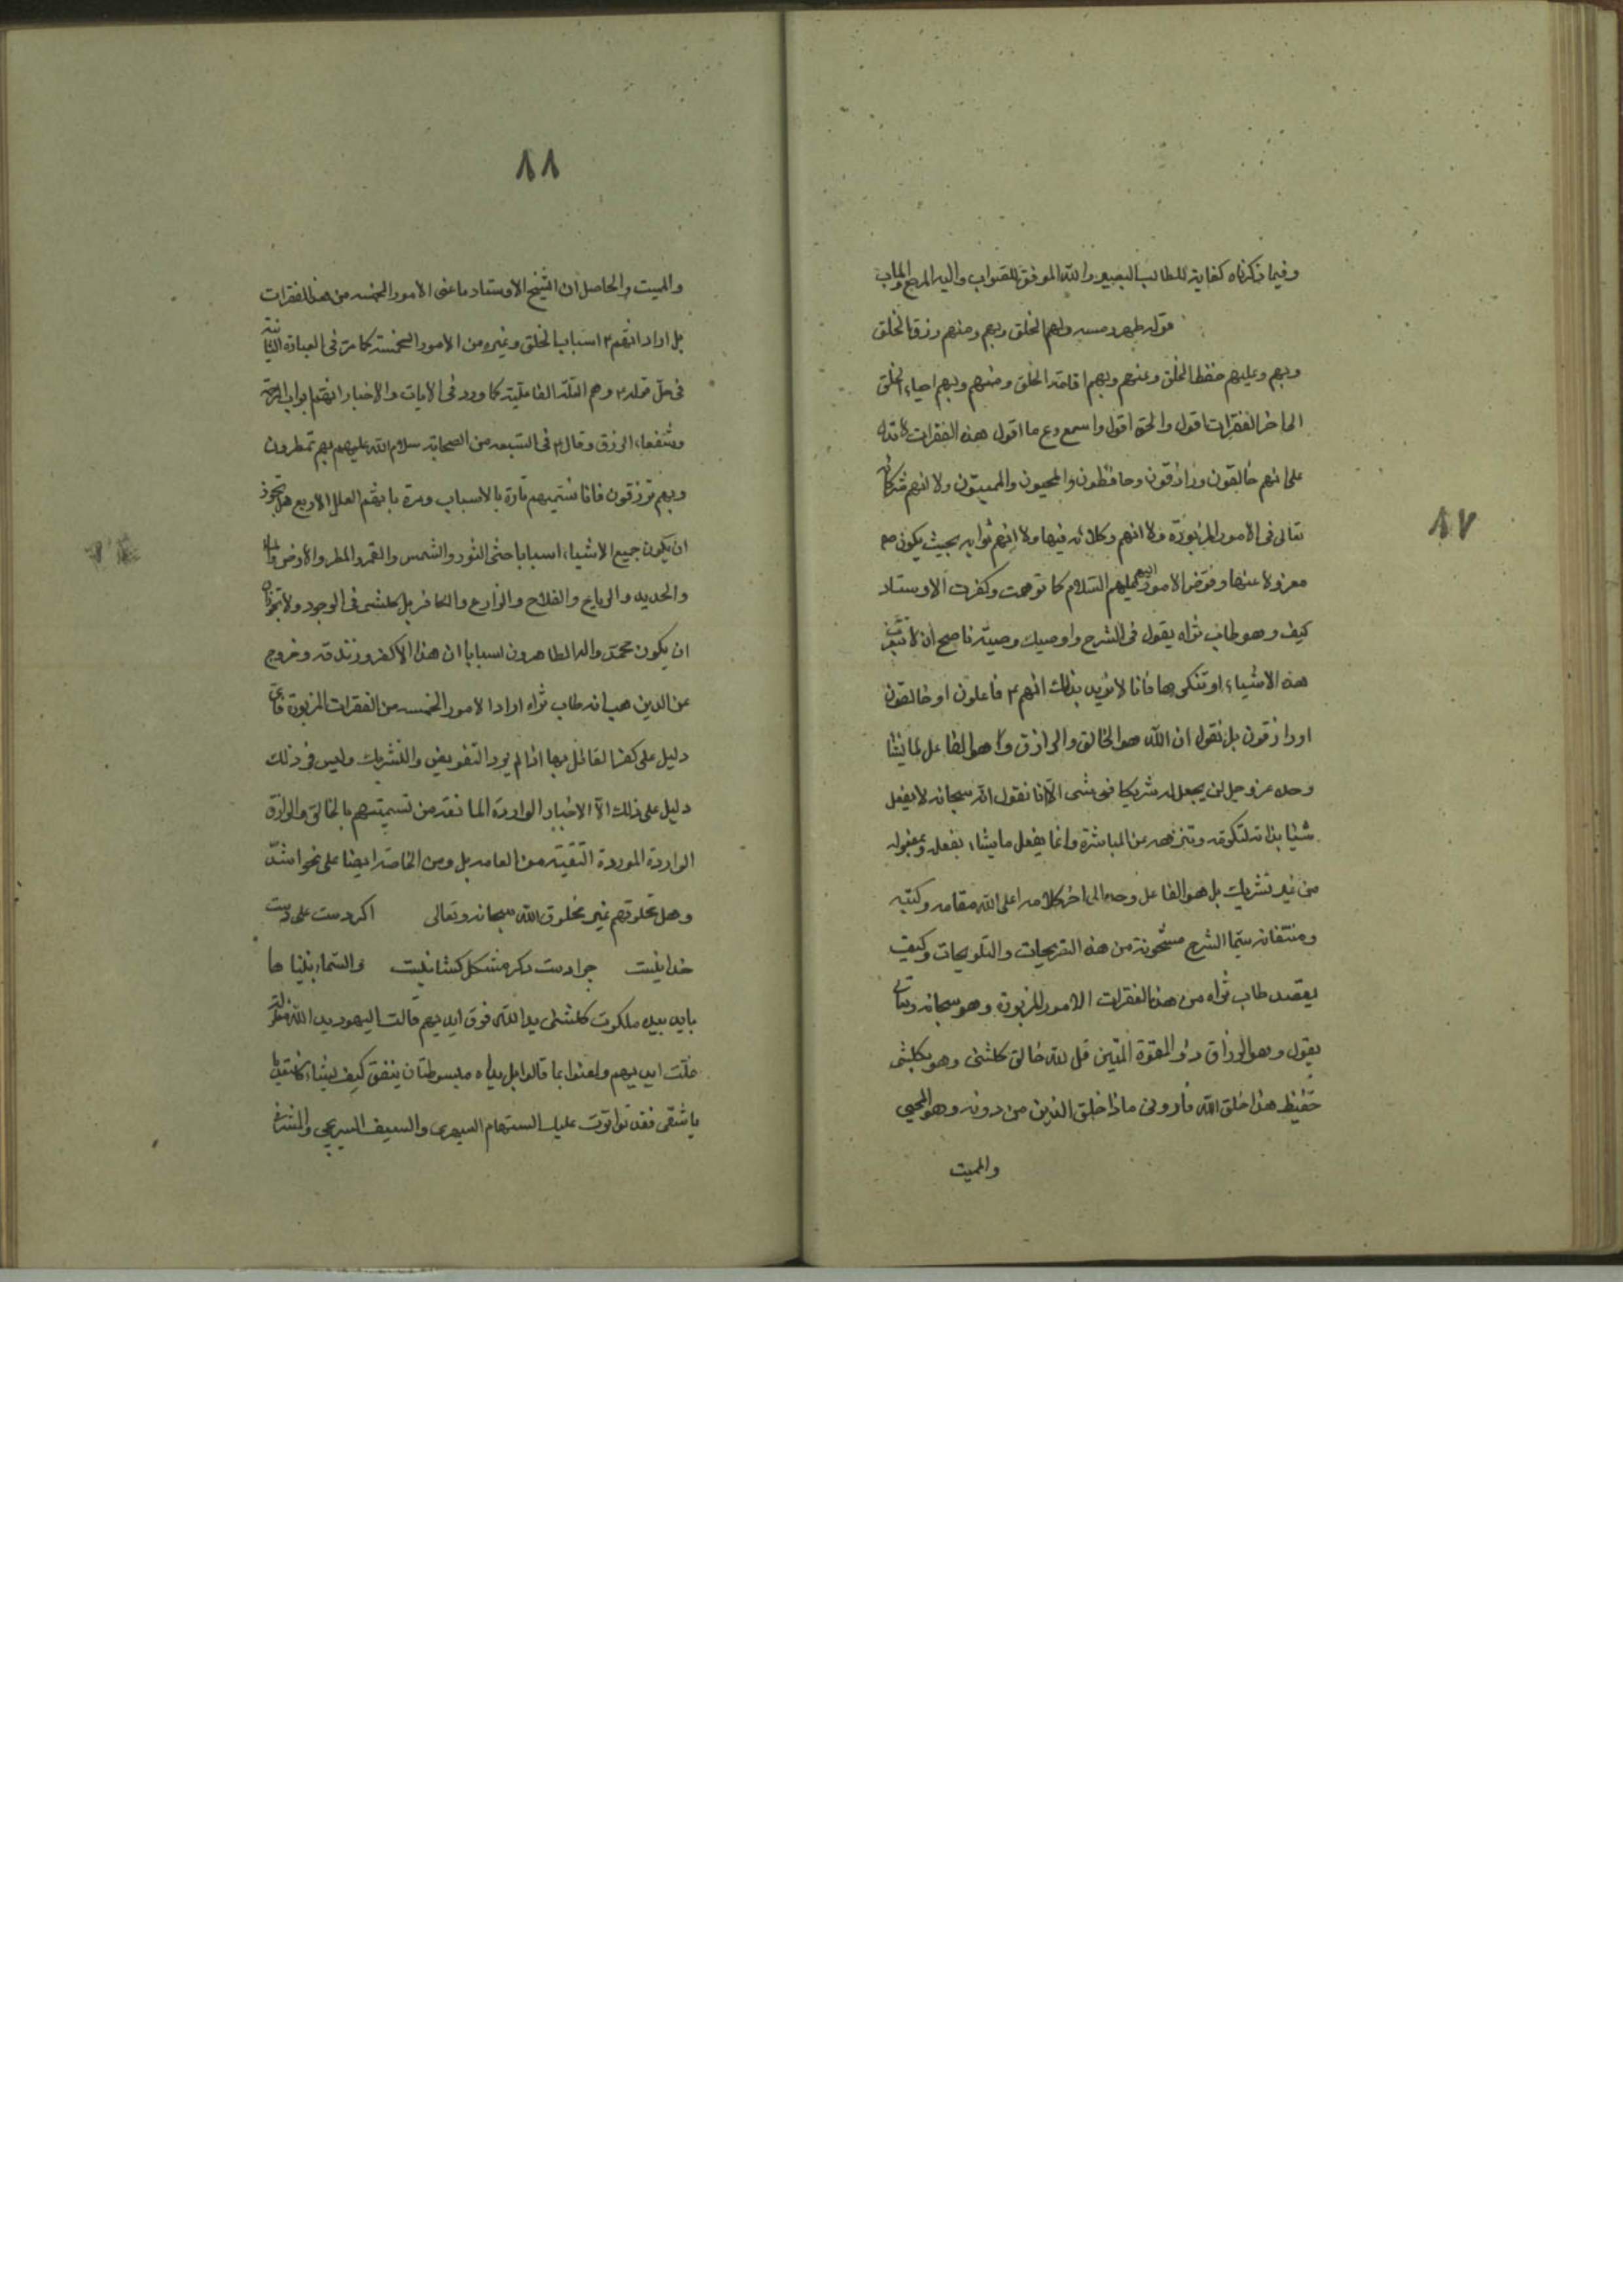 وفيما ذكرناه كفاية للطالب البصير والله الموفق للصواب واليه المرجع والماب
قوله ولهم الخلق وبهم ومنهم رزق الخلق
وبهم وعليهم حفظ الخلق وعنهم وبهم اقامة الخلق ومنهم وبهم احياء الخلق
الى اخر الفقرات اقول والحق اقول واسمع وع ما اقول هذه الفقرات لا تدل
على انهم خالقون ورازقون وحافظون والمحيون والمميتون ولا انهم شركائه
تعالى في الامور المزبورة ولا انهم وكلائه فيها ولا انهم نوابه بحيث يكون هو
معزولا عنها وفوض الامور اليهم عليهم السلام كما توهمت وكفرت الاوستاد
كيف وهو طاب ثراه يقول في الشرح واوصيك وصية ناصح ان لا
هذه الاشياء او تنكرها فانا لا نريد بذلك انهم ع فاعلون او خالقون
او رازقون بل نقول ان الله هو الخالق والرازق وهو الفاعل لما يشاء
وحده عز وجل لن يجعل له شريكا في شى الا انا نقول انه سبحانه لا يفعل
شيئا بذاته لتكرمه وتنزهه عن المباشرة وانما يفعل ما يشاء بفعله وبمفعوله
من غير تشريك بل هو الفاعل وحده الى اخر كلامه اعلى الله مقامه وكتبه
ومنتقاته سيما الشرح مشحونة من هذه التصريحات والتلويحات وكيف
يقصد طاب ثراه من هذه الفقرات الامور المزبورة وهو سبحانه وتعالى
يقول وهو الرزاق ذو القوة المتين قل لله خالق كلشئ وهو بكلشئ
حفيظ هذا خلق الله فأروني ماذا خلق الذين من دونه وهو المحيي
والمميت
٨٧
٨٨
والمميت والحاصل ان الشيخ الاوستاد ما عنى الامور الخمسه من هذه الفقرات
بل اراد انهم ع اسباب الخلق وغيره من الامور الخمسة كما مر في العبارة الثانية
في حل قوله ع وهم العلة الفاعلية كما ورد في الايات والاخبار انهم ابواب الرحمة
وشفعاء الرزق وقال ع في السبعه من الصحابة سلام الله عليهم بهم تمطرون
وبهم ترزقون فانا نسميهم تارة بالاسباب ومرة بانهم العلل الاربع هل يجوز
ان يكون جميع الاشياء اسبابا حتى الثور والشمس والقمر والمطر والارض والماء
والحديد والرياح والفلاح والزارع والكافر بل كلشى في الوجود ولا
ان يكون محمد واله الطاهرون اسبابا ان هذا الا كفر وزندقه وخروج
عن الدين هب انه طاب ثراه اراد الامور الخمسه من الفقرات المزبورة فاى
دليل على كفر القائل بها اذا لم يرد التفويض والتشريك وليس في ذلك
دليل على ذلك الا الاخبار الواردة المانعة من تسميتهم بالخالق والرازق
الواردة الموردة التقية من العامه بل ومن الخاصة ايضا على نحو اشد
وهل مخلوقهم غير مخلوق الله سبحانه وتعالى اكر دست على دست
خدا نيست چرا دست دكر مشكل كشا نيست والسماء بنيناها
بايد بيده ملكوت كلشئ يد الله فوق ايديهم قالت اليهود يد الله مغلولة
غلت ايديهم ولعنوا بما قالوا بل يداه مبسوطتان ينفق كيف يشاء
يا شقى فقد تواترت عليك السهام السمهرى والسيف السريجي